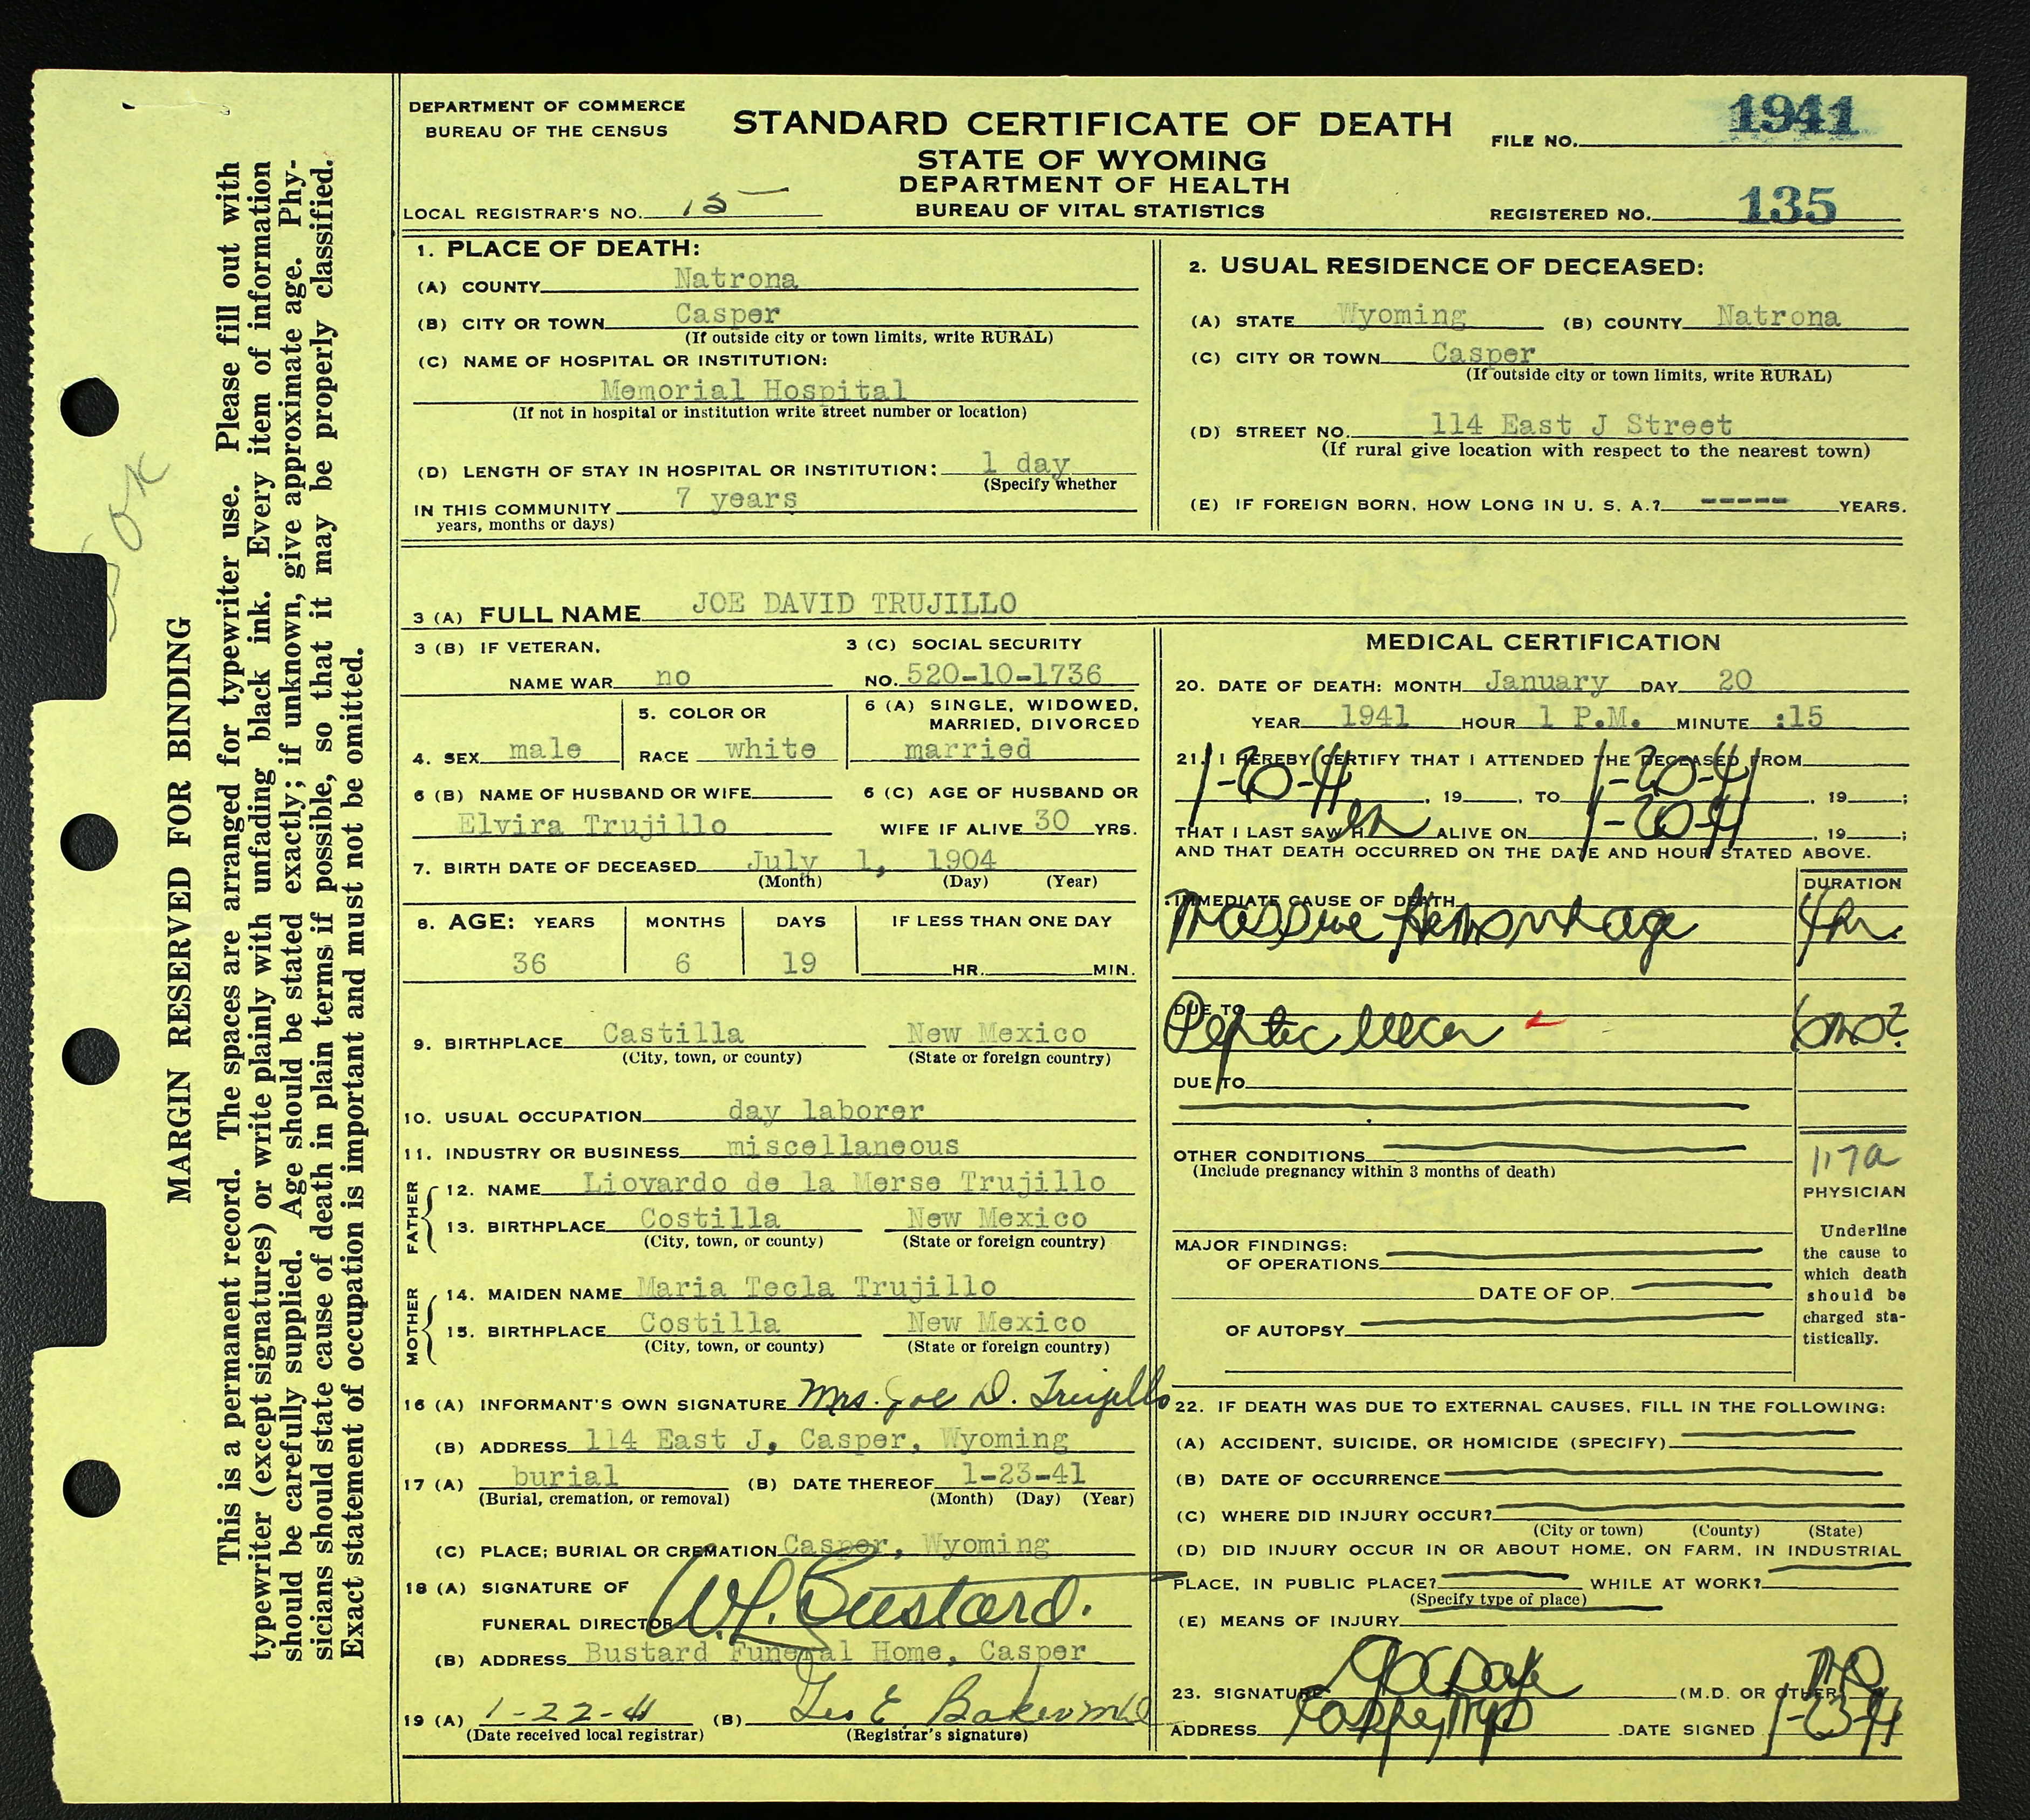 DEPARTMENT OF COMMERCE
BUREAU OF THE CENSUS
STANDARD CERTIFICATE OF DEATH
STATE OF WYOMING
DEPARTMENT OF HEALTH
BUREAU OF VITAL STATISTICS
FILE NO. 1941
LOCAL REGISTRAR'S NO. 15
REGISTERED NO. 135
MARGIN RESERVED FOR BINDING
This is a permanent record. The spaces are arranged for typewriter use. Please fill out with
typewriter (except signatures) or write plainly with unfading black ink. Every item of information
should be carefully supplied. Age should be stated exactly; if unknown, give approximate age. Phy-
sicians should state cause of death in plain terms if possible, so that it may be properly classified.
Exact statement of occupation is important and must not be omitted.
OK
1. PLACE OF DEATH:
(A) COUNTY Natrona
(B) CITY OR TOWN Casper
(If outside city or town limits, write RURAL)
(C) NAME OF HOSPITAL OR INSTITUTION:
Memorial Hospital
(If not in hospital or institution write street number or location)
(D) LENGTH OF STAY IN HOSPITAL OR INSTITUTION: 1 day
(Specify whether
IN THIS COMMUNITY 7 years
years, months or days)
2. USUAL RESIDENCE OF DECEASED:
(A) STATE Wyoming (B) COUNTY Natrona
(C) CITY OR TOWN Casper
(If outside city or town limits, write RURAL)
(D) STREET NO. 114 East J Street
(If rural give location with respect to the nearest town)
(E) IF FOREIGN BORN, HOW LONG IN U. S. A.? ----- YEARS.
3 (A) FULL NAME JOE DAVID TRUJILLO
3 (B) IF VETERAN,
NAME WAR no
3 (C) SOCIAL SECURITY
NO. 520-10-1736
4. SEX male
5. COLOR OR
RACE white
6 (A) SINGLE, WIDOWED,
MARRIED, DIVORCED
married
6 (B) NAME OF HUSBAND OR WIFE
Elvira Trujillo
6 (C) AGE OF HUSBAND OR
WIFE IF ALIVE 30 YRS.
7. BIRTH DATE OF DECEASED July 1, 1904
(Month) (Day) (Year)
8. AGE: YEARS MONTHS DAYS IF LESS THAN ONE DAY
36 6 19 HR. MIN.
9. BIRTHPLACE Castilla New Mexico
(City, town, or county) (State or foreign country)
10. USUAL OCCUPATION day laborer
11. INDUSTRY OR BUSINESS miscellaneous
FATHER
12. NAME Liovardo de la Merse Trujillo
13. BIRTHPLACE Costilla New Mexico
(City, town, or county) (State or foreign country)
MOTHER
14. MAIDEN NAME Maria Tecla Trujillo
15. BIRTHPLACE Costilla New Mexico
(City, town, or county) (State or foreign country)
16 (A) INFORMANT'S OWN SIGNATURE Mrs. Joe D. Trujillo
(B) ADDRESS 114 East J, Casper, Wyoming
17 (A) burial (B) DATE THEREOF 1-23-41
(Burial, cremation, or removal) (Month) (Day) (Year)
(C) PLACE; BURIAL OR CREMATION Casper, Wyoming
18 (A) SIGNATURE OF
FUNERAL DIRECTOR W.L. Bustard.
(B) ADDRESS Bustard Funeral Home, Casper
19 (A) 1-22-41 (B) Geo E. Baker MD
(Date received local registrar) (Registrar's signature)
MEDICAL CERTIFICATION
20. DATE OF DEATH: MONTH January DAY 20
YEAR 1941 HOUR 1 P.M. MINUTE :15
21. I HEREBY CERTIFY THAT I ATTENDED THE DECEASED FROM
1-20-41, 19 , TO 1-20-41, 19 ;
THAT I LAST SAW H im ALIVE ON 1-20-41, 19 ;
AND THAT DEATH OCCURRED ON THE DATE AND HOUR STATED ABOVE.
IMMEDIATE CAUSE OF DEATH DURATION
Massive Hemorrhage 4 hr.
DUE TO
Peptic Ulcer 6 mo?
DUE TO
OTHER CONDITIONS
(Include pregnancy within 3 months of death)
117a
PHYSICIAN
Underline
the cause to
which death
should be
charged sta-
tistically.
MAJOR FINDINGS:
OF OPERATIONS
DATE OF OP.
OF AUTOPSY
22. IF DEATH WAS DUE TO EXTERNAL CAUSES, FILL IN THE FOLLOWING:
(A) ACCIDENT, SUICIDE, OR HOMICIDE (SPECIFY)
(B) DATE OF OCCURRENCE
(C) WHERE DID INJURY OCCUR?
(City or town) (County) (State)
(D) DID INJURY OCCUR IN OR ABOUT HOME, ON FARM, IN INDUSTRIAL
PLACE, IN PUBLIC PLACE? WHILE AT WORK?
(Specify type of place)
(E) MEANS OF INJURY
23. SIGNATURE (M.D. OR OTHER) MD
ADDRESS Casper, Wyo DATE SIGNED 1-23-41